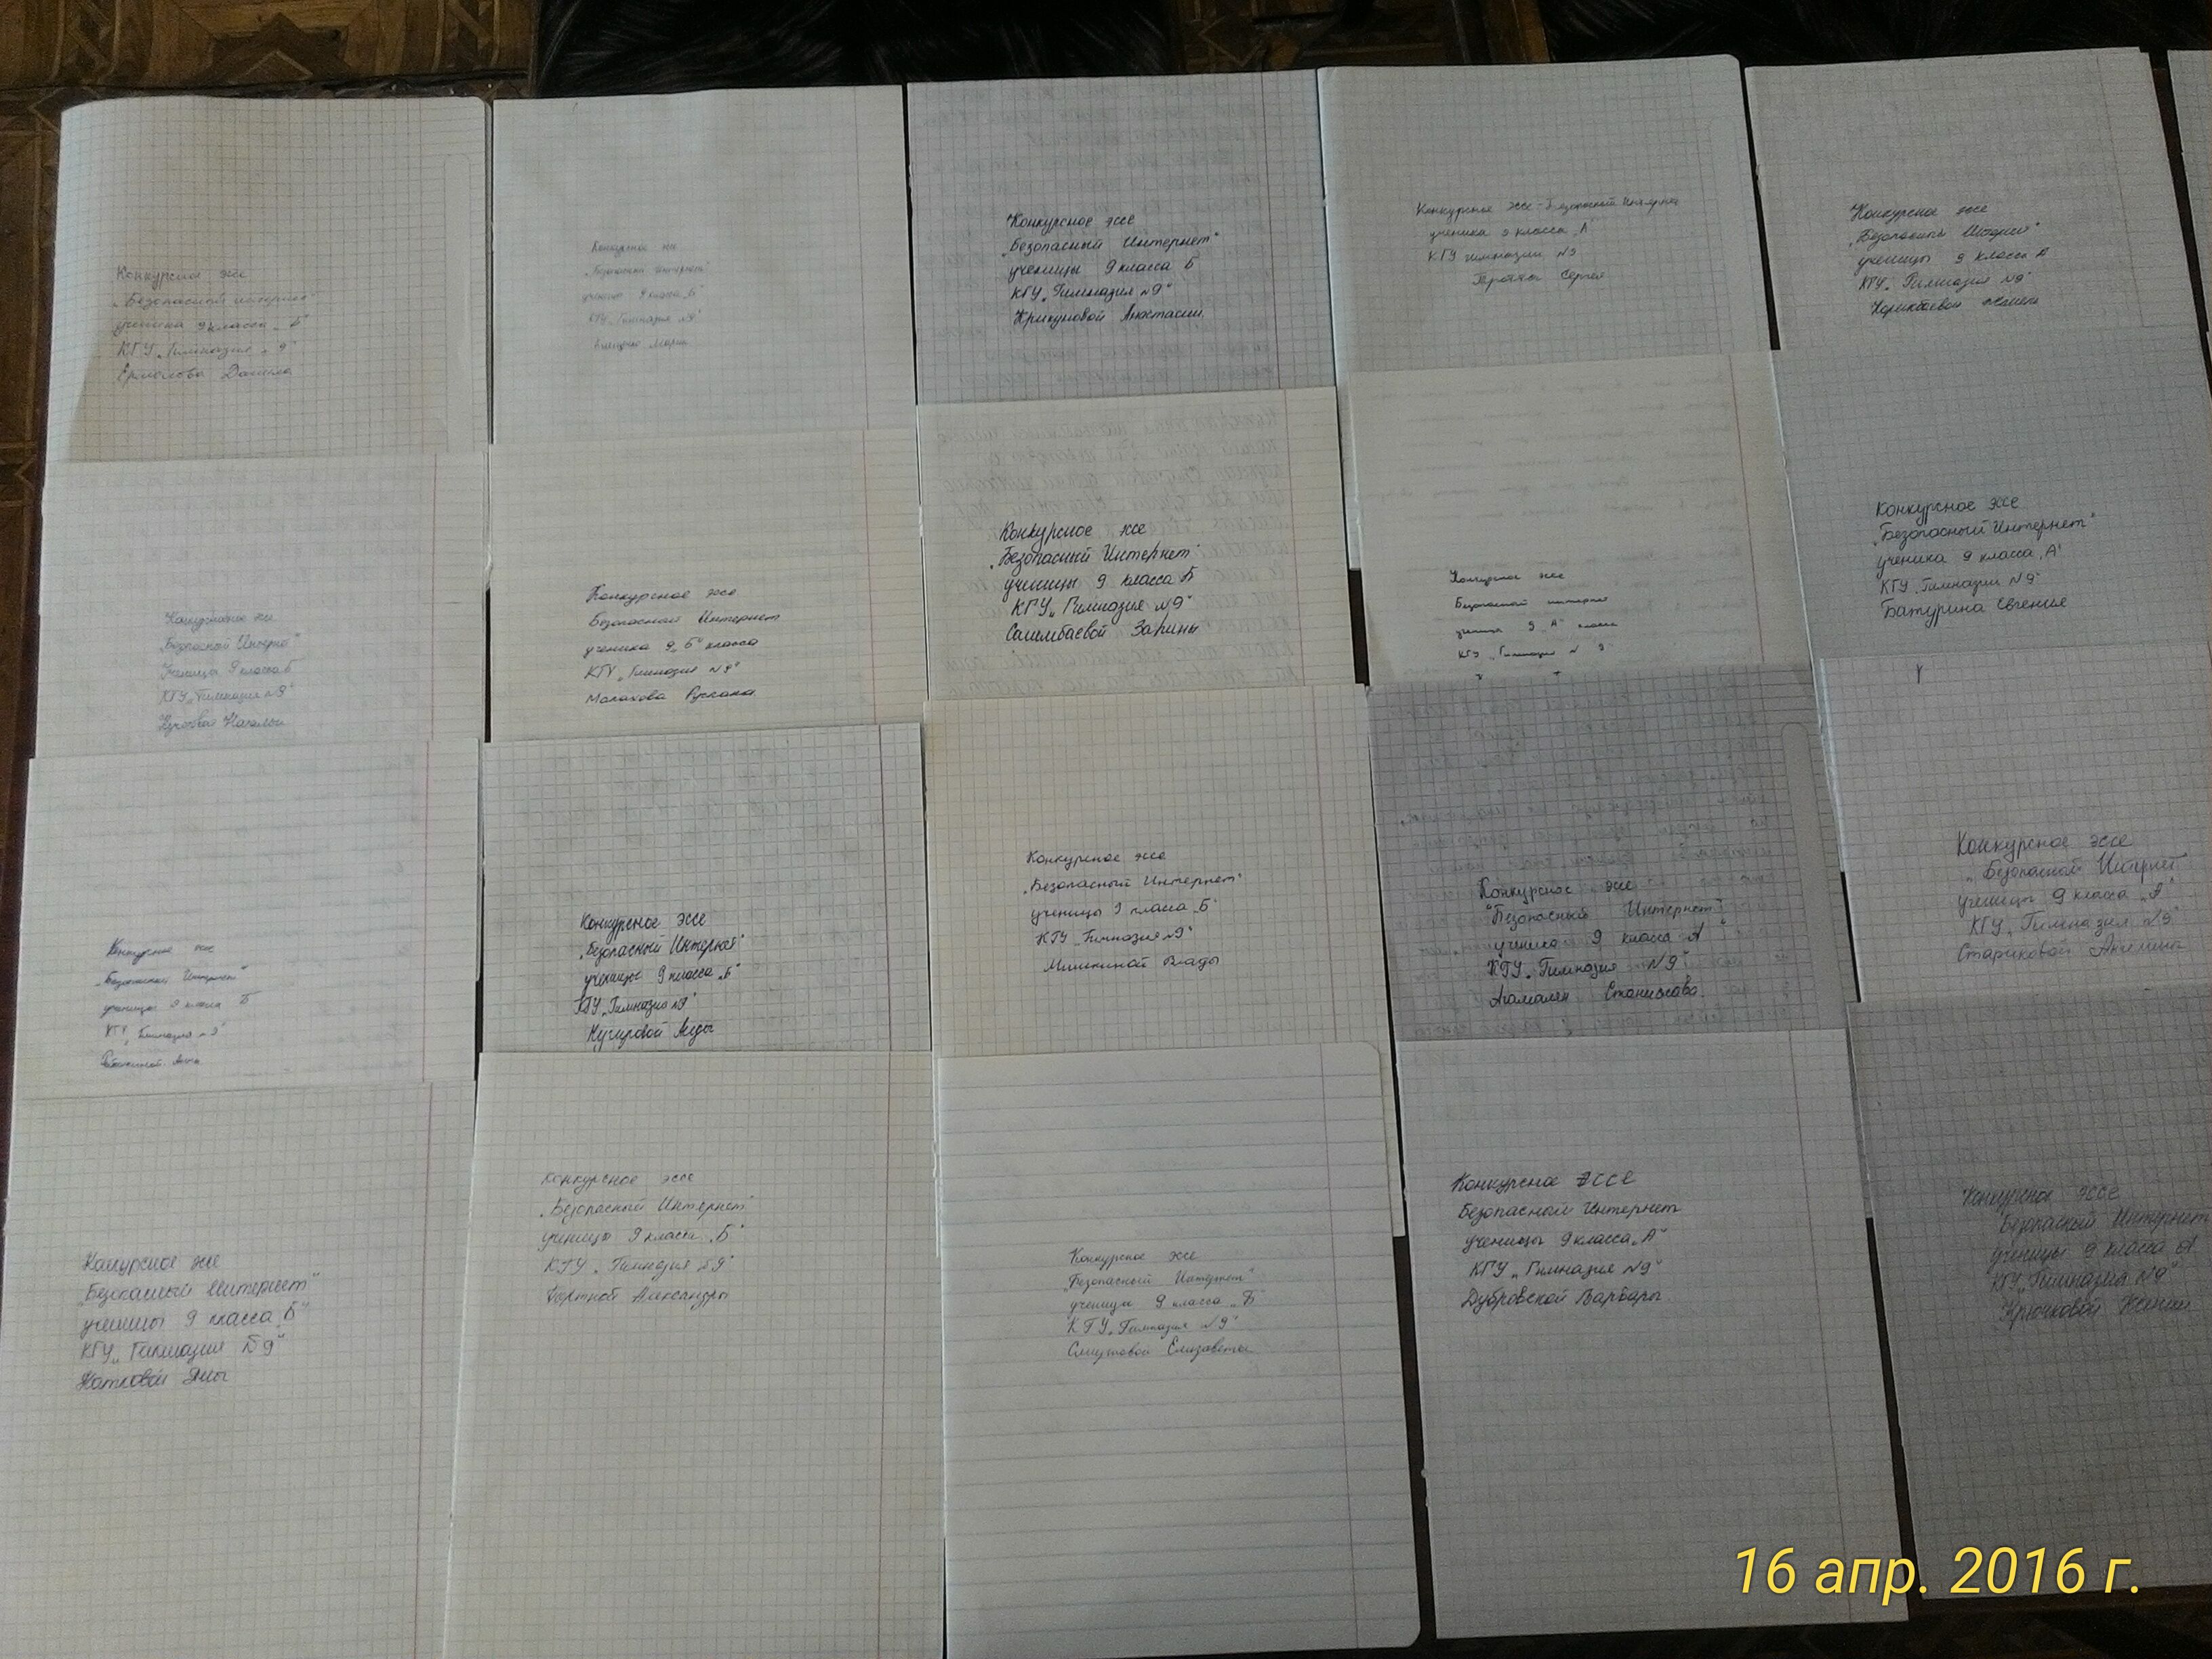 Конкурсное эссе
„Безопасный интернет“
ученика 9 класса „Б“
КГУ „Гимназия №9“
Ермолова Данила
Конкурсное эссе
„Безопасный интернет“
9 класса „Б“
КГУ „Гимназия №9“
Марии
Конкурсное эссе
„Безопасный Интернет“
ученицы 9 класса Б
КГУ „Гимназия №9“
Крикуновой Анастасии.
Конкурсное эссе - Безопасный Интернет
ученика 9 класса „А“
КГУ гимназии №9
Сергея
Конкурсное эссе
„Безопасный Интернет“
ученицы 9 класса А
КГУ „Гимназия №9“
Конкурсное эссе
„Безопасный Интернет“
Ученицы 9 класса Б
КГУ „Гимназия №9“
Натальи
Конкурсное эссе
Безопасный Интернет
ученика 9 „Б“ класса
КГУ „Гимназия №9“
Малахова Руслана
Конкурсное эссе
„Безопасный Интернет“
ученицы 9 класса Б
КГУ „Гимназия №9“
Салимбаевой Зарины
Конкурсное эссе
Безопасный интернет
9 „А“ класса
КГУ „Гимназия №9“
Конкурсное эссе
„Безопасный Интернет“
ученика 9 класса „А“
КГУ „Гимназия №9“
Батурина Евгения
Конкурсное эссе
„Безопасный Интернет“
ученицы 9 класса Б
КГУ „Гимназия №9“
Конкурсное эссе
„Безопасный Интернет“
ученицы 9 класса „Б“
КГУ „Гимназия №9“
Конкурсное эссе
„Безопасный Интернет“
ученицы 9 класса „Б“
КГУ „Гимназия №9“
Мишкиной Влады
Конкурсное эссе
"Безопасный Интернет"
ученика 9 класса „А“
КГУ „Гимназия №9“
Агамалян Станислава.
Конкурсное эссе
„Безопасный Интернет“
ученицы 9 класса „А“
КГУ „Гимназия №9“
Стариковой Ангелины
Конкурсное эссе
„Безопасный Интернет“
ученицы 9 класса „Б“
КГУ „Гимназия №9“
Конкурсное эссе
„Безопасный Интернет“
ученицы 9 класса „Б“
КГУ „Гимназия №9“
Александры
Конкурсное эссе
„Безопасный Интернет“
ученицы 9 класса „Б“
КГУ „Гимназия №9“
Елизаветы
Конкурсное эссе
Безопасный Интернет
ученицы 9 класса „А“
КГУ „Гимназия №9“
Дубровской Варвары.
Конкурсное эссе
"Безопасный Интернет
ученицы 9 класса А
КГУ „Гимназия №9“
Крючковой Ксении
16 апр. 2016 г.